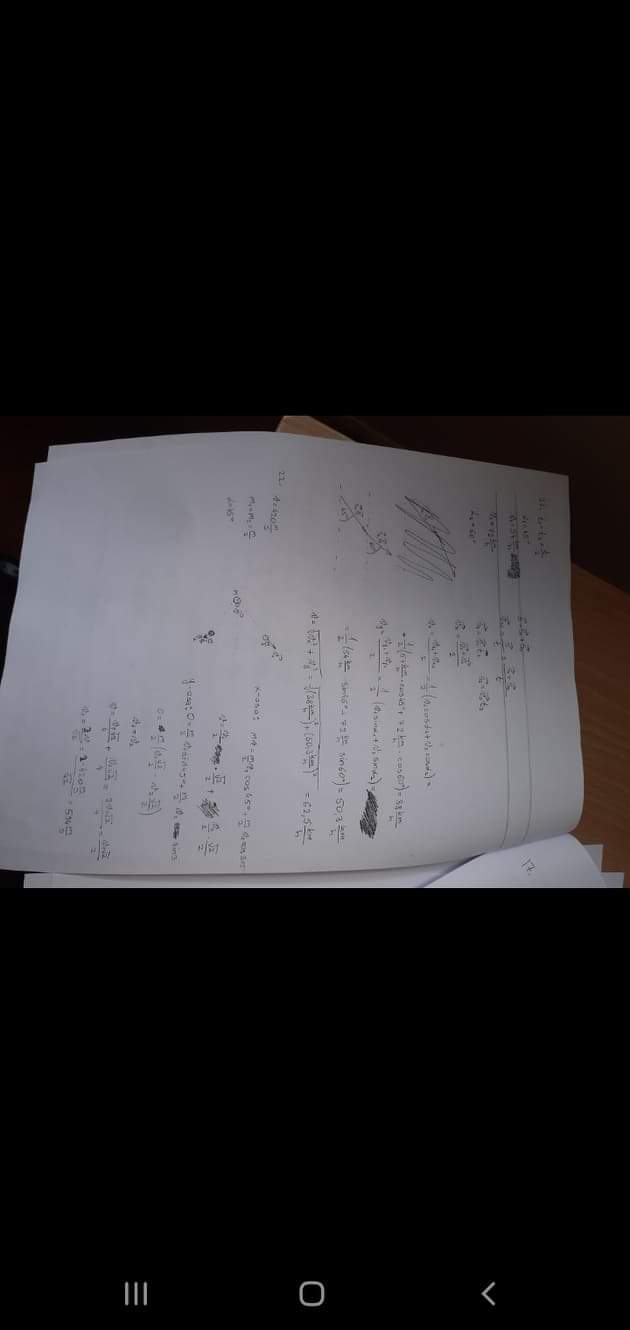 21. t₁=t₂=t/2
α₁=45°
v₁=54 km/h
v₂=72 km/h
α₂=60°
vₓ = (vₓ₁+vₓ₂)/2 = 1/2 (v₁cosα₁+v₂cosα₂)=
= 1/2 (54 km/h · cos45° + 72 km/h · cos60°) = 38 km/h
v_y = (v_y₁+v_y₂)/2 = 1/2 (v₁sinα₁+v₂sinα₂)=
= 1/2 (54 km/h · sin45° + 72 km/h sin60°) = 50,3 km/h
v=√(vₓ²+v_y²) = √((38 km/h)²+(50,3 km/h)²) = 62,5 km/h
22. v=420 m/s
m₁=m₂=m/2
α=45°
x-osa: mv = m/2 v₁ cos45° + m/2 v₂ cos
v = v₁/2 · √2/2 + v₂/2 · √2/2
y-osa: 0 = m/2 v₁ sin45° + m/2 v₂ sin
0 = m/2 (v₁ √2/2 - v₂ √2/2)
v₁=v₂
v = v₁√2/4 + v₁√2/4 = 2v₁√2/4 = v₁√2/2
v₁ = 2v/√2 = 2·420 m/s/√2 = 594 m/s
17.